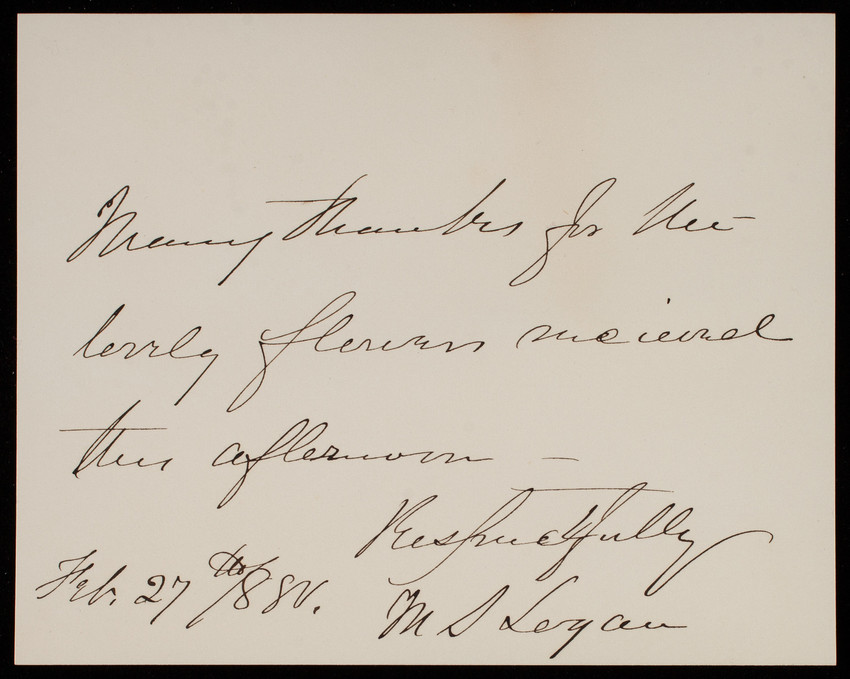 Many thanks for the
lovely flowers recieved
this afternoon —
Respectfully
Feb. 27th/88
M S Logan